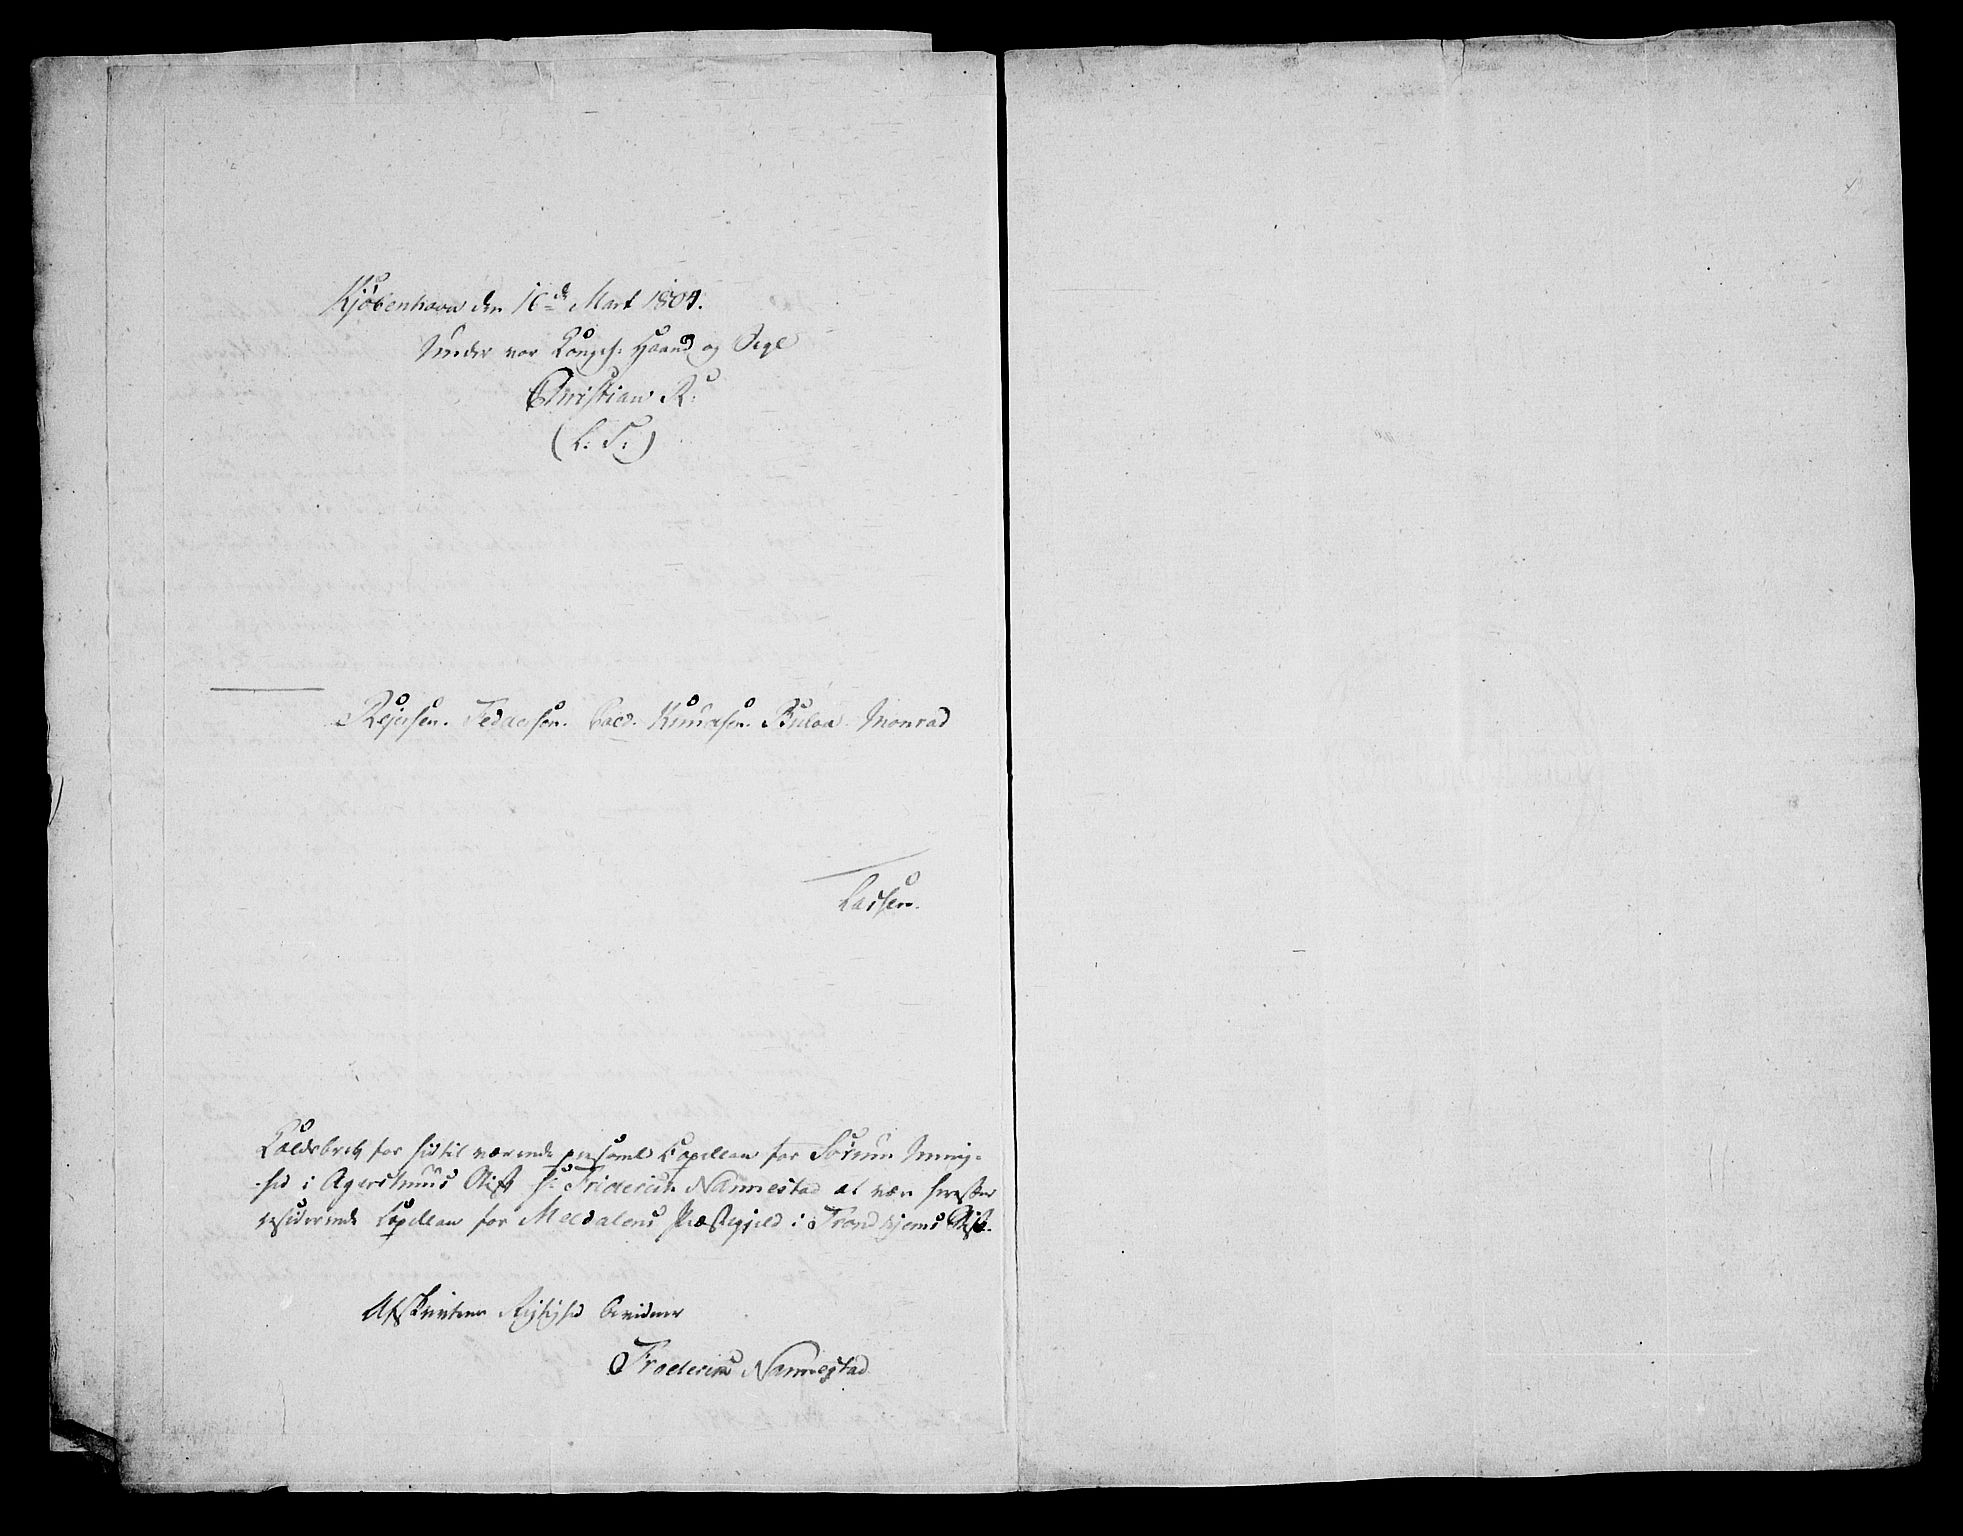 Kjøbenhavn den 16de Mart 1804.
Under vor Kongel: Haand og Segl
Christian R:
(L: S:)
Rejersen. Feddersen. Cold. Knudsen. Bülow. Monrad
Lassen.
Kaldsbrev for hidtil værende personel Capellan for Sørum Menig-
hed i Agershuus Stift Hr Friderich Nannestad at være herefter
residerende Capellan for Meldalens Præstegield i Trondhjems Stift.
Afskriftens Rigtighed bevidner
Fredericus Nannestad